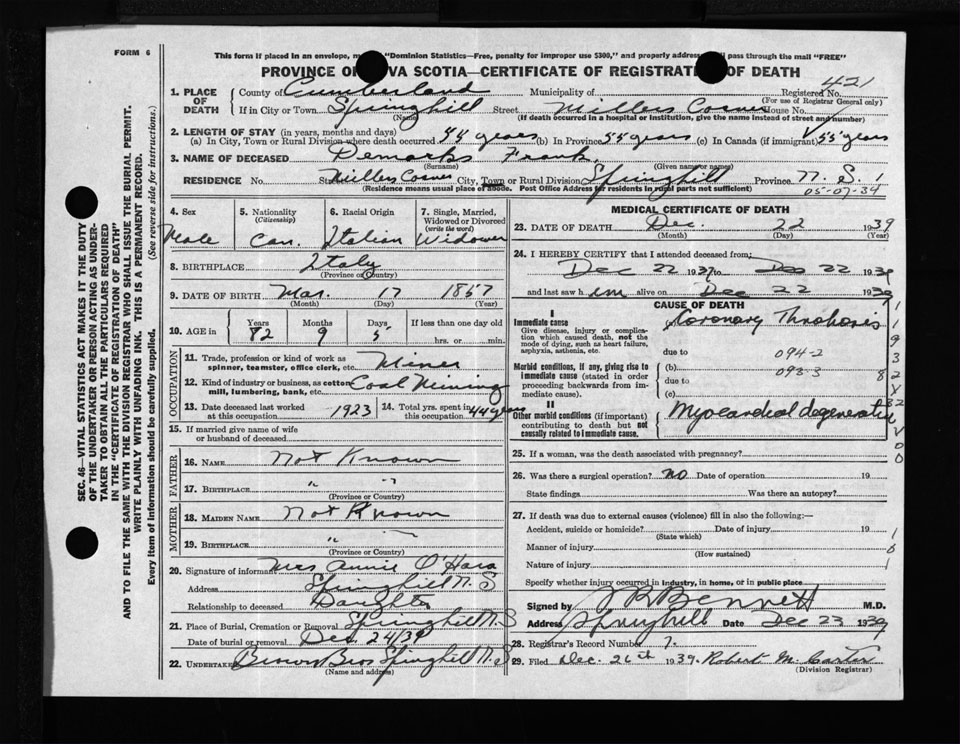 FORM 6
This form if placed in an envelope, "Dominion Statistics—Free, penalty for improper use $300," and properly address pass through the mail "FREE"
PROVINCE O VA SCOTIA—CERTIFICATE OF REGISTRAT OF DEATH
421
1. PLACE OF DEATH County of Cumberland Municipality of Registered No.
(For use of Registrar General only)
If in City or Town Springhill Street Millers Corner House No.
(Name) (If death occurred in a hospital or institution, give the name instead of street and number)
2. LENGTH OF STAY (in years, months and days)
(a) In City, Town or Rural Division where death occurred 44 years (b) In Province 55 years (c) In Canada (if immigrant) 55 years
3. NAME OF DECEASED Demarks Frank
(Surname) (Given name or names)
RESIDENCE No. St. Millers Corner City, Town or Rural Division Springhill Province N. S. 1
(Residence means usual place of abode. Post Office Address for residents in rural parts not sufficient)
05-07-34
4. Sex Male
5. Nationality (Citizenship) Can.
6. Racial Origin Italian
7. Single, Married, Widowed or Divorced (write the word) Widower
8. BIRTHPLACE Italy
(Province or Country)
9. DATE OF BIRTH Mar. 17 1857
(Month) (Day) (Year)
10. AGE in Years Months Days If less than one day old
82 9 5 hrs. or min.
OCCUPATION
11. Trade, profession or kind of work as spinner, teamster, office clerk, etc. Miner
12. Kind of industry or business, as cotton mill, lumbering, bank, etc. Coal Mining
13. Date deceased last worked at this occupation 1923
14. Total yrs. spent in this occupation 44 years
15. If married give name of wife or husband of deceased
FATHER
16. NAME Not Known
17. BIRTHPLACE " "
(Province or Country)
MOTHER
18. MAIDEN NAME Not Known
19. BIRTHPLACE "
(Province or Country)
20. Signature of informant Mrs Annie O'Hara
Address Springhill N. S
Relationship to deceased Daughter
21. Place of Burial, Cremation or Removal Springhill N. S
Date of burial or removal Dec. 24/39
22. UNDERTAKER Brown Bros Springhill N. S
(Name and address)
MEDICAL CERTIFICATE OF DEATH
23. DATE OF DEATH Dec. 22 1939
(Month) (Day) (Year)
24. I HEREBY CERTIFY that I attended deceased from:
Dec 22 1939 to Dec 22 1939
and last saw him alive on Dec 22 1939
CAUSE OF DEATH
I
Immediate cause Coronary Thrombosis
Give disease, injury or complication which caused death, not the mode of dying, such as heart failure, asphyxia, asthenia, etc.
due to 094-2
Morbid conditions, if any, giving rise to immediate cause (stated in order proceeding backwards from immediate cause).
(b) 093-3
due to
(c)
II
Other morbid conditions (if important) contributing to death but not causally related to immediate cause.
Myocardial degeneration
25. If a woman, was the death associated with pregnancy?
26. Was there a surgical operation? No Date of operation 19
State findings Was there an autopsy?
27. If death was due to external causes (violence) fill in also the following:—
Accident, suicide or homicide? Date of injury 19
(State which)
Manner of injury
(How sustained)
Nature of injury
Specify whether injury occurred in industry, in home, or in public place
Signed by J R Bennett M.D.
Address Springhill Date Dec 23 1939
28. Registrar's Record Number 7.
29. Filed Dec. 26th 1939. Robert M. Carter
(Division Registrar)
SEC. 46—VITAL STATISTICS ACT MAKES IT THE DUTY
OF THE UNDERTAKER OR PERSON ACTING AS UNDER-
TAKER TO OBTAIN ALL THE PARTICULARS REQUIRED
IN THE "CERTIFICATE OF REGISTRATION OF DEATH"
AND TO FILE THE SAME WITH THE DIVISION REGISTRAR WHO SHALL ISSUE THE BURIAL PERMIT.
WRITE PLAINLY WITH UNFADING INK. THIS IS A PERMANENT RECORD.
Every item of Information should be carefully supplied. (See reverse side for instructions.)